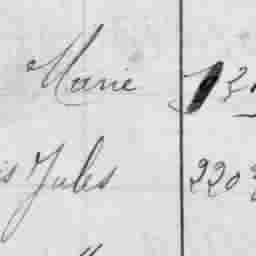 Marie 13
is Jules 220